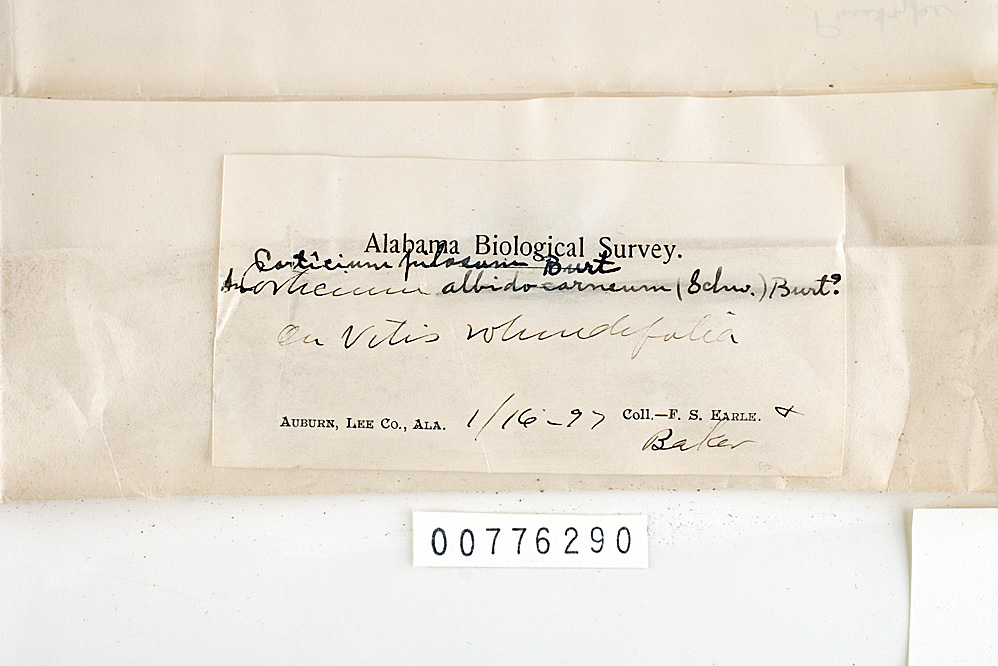 Paratype
Alabama Biological Survey.
Corticium pilosum Burt
Corticium albido-carneum (Schw.) Burt?
On Vitis rotundifolia
Auburn, Lee Co., Ala. 1/16-97 Coll.—F. S. Earle. &
Baker
00776290